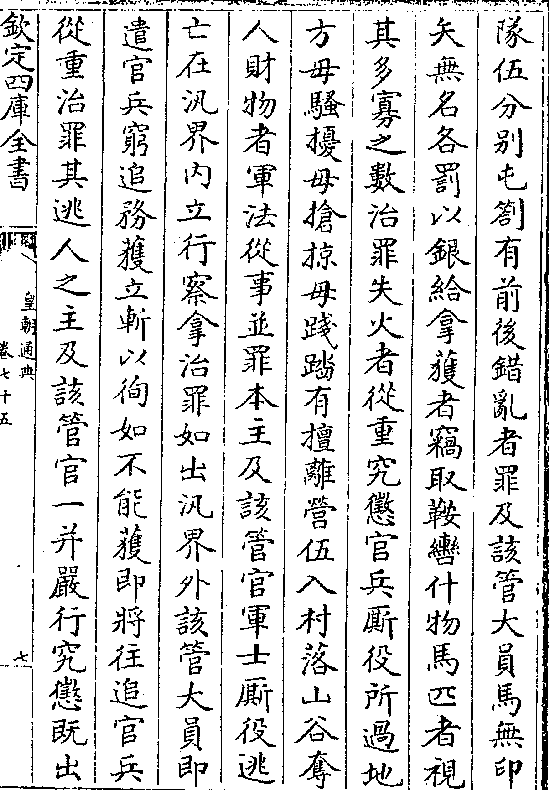 隊伍分别屯劄有前後錯亂者罪及該管大員馬無印
矢無名各罰以銀給拿獲者竊取鞍轡什物馬匹者視
其多寡之數治罪失火者從重究懲官兵厮役所過地
方毋騷擾毋搶掠毋踐踏有擅離營伍入村落山谷奪
人財物者軍法從事並罪本主及該管官軍士厮役逃
亡在汛界内立行察拿治罪如出汛界外該管大員即
遣官兵窮追務獲立斬以徇如不能獲即將往追官兵
從重治罪其逃人之主及該管官一并嚴行究懲既出
欽定四庫全書
皇朝通典
卷七十五
七